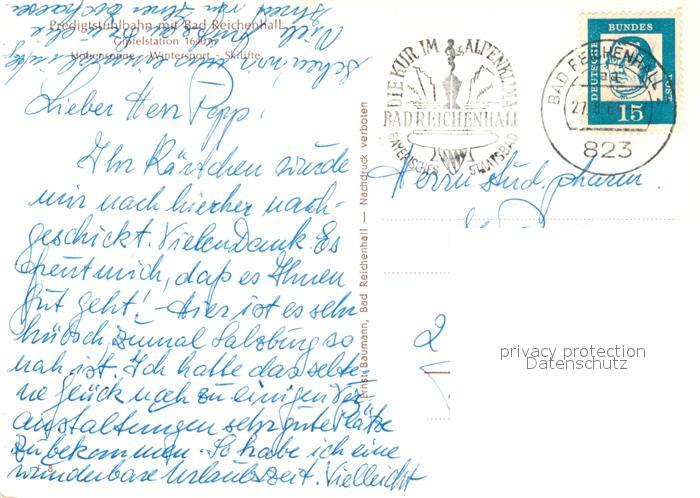 Predigtstuhlbahn mit Bad Reichenhall
Gipfelstation 1640 m
Höhensonne - Wintersport - Skilifte
Lieber Herr Popp,
Ihr Kärtchen wurde
mir nach hierher nach-
geschickt. Vielen Dank. Es
freut mich, daß es Ihnen
gut geht! - Hier ist es sehr
hübsch, zumal Salzburg so
nah ist. Ich hatte das selte-
ne Glück noch zu einigen Ver-
anstaltungen sehr gute Plätze
zu bekommen. So habe ich eine
wunderbare Urlaubszeit. Vielleicht
Ernst Baumann, Bad Reichenhall — Nachdruck verboten
DIE KUR IM ALPENKLIMA
BAD REICHENHALL
BAYERISCHES STAATSBAD
BAD REICHENHALL
823
DEUTSCHE BUNDESPOST
15
Herrn stud. pharm.
2
privacy protection
Datenschutz